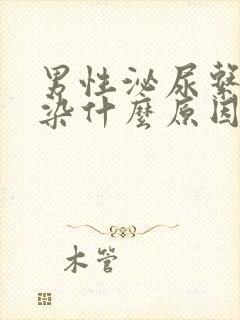 男性泌尿系
染什麼原因
木管